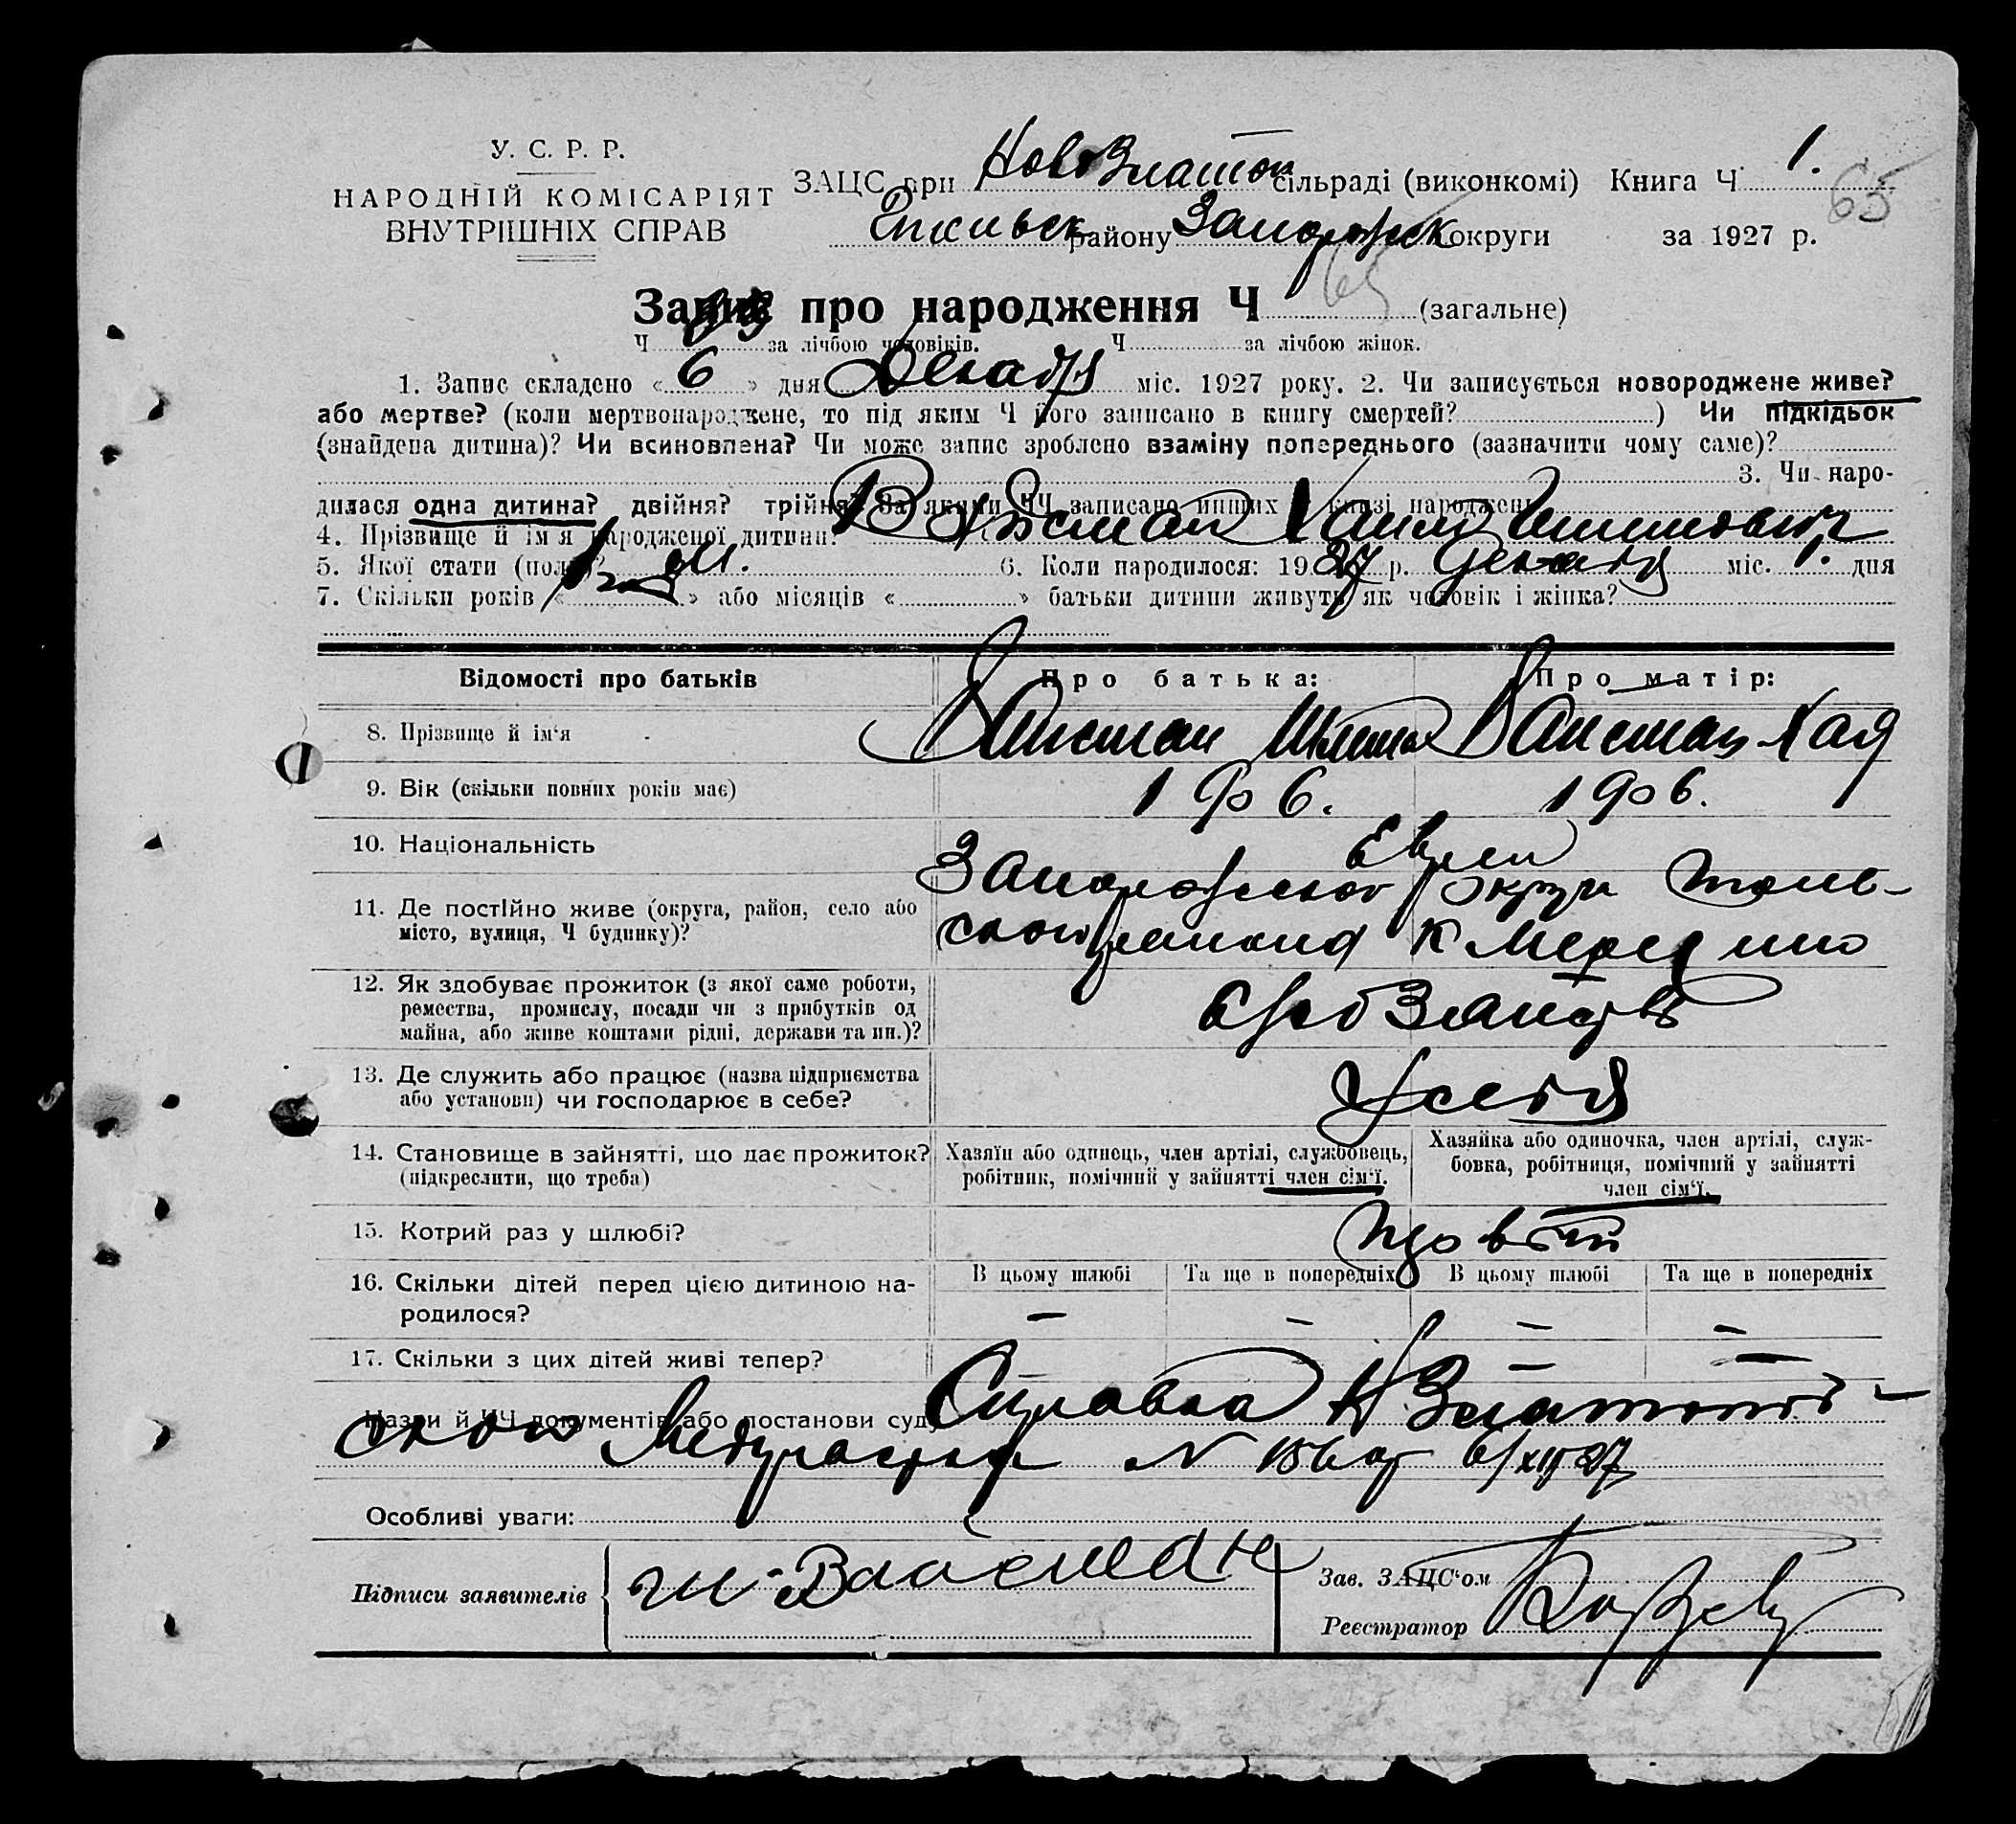 У. С. Р. Р.
НАРОДНІЙ КОМІСАРІЯТ
ВНУТРІШНІХ СПРАВ
ЗАЦС при НовоЗлатоп сільраді (виконкомі) Книга Ч 1.
65
району Запорожск округи за 1927 р.
Запис про народження Ч 65 (загальне)
Ч за лічбою чоловіків. Ч за лічбою жінок.
1. Запис складено « 6 » дня Декабря міс. 1927 року. 2. Чи записується новороджене живе?
або мертве? (коли мертвонароджене, то під яким Ч його записано в книгу смертей? ) Чи підкідьок
(знайдена дитина)? Чи всиновлена? Чи може запис зроблено взаміну попереднього (зазначити чому саме)?
3. Чи наро-
дилася одна дитина? двійня? трійня? За якими ЧЧ записано инших в книзі народжень
4. Прізвище й ім'я народженої дитини:
5. Якої стати (полу)? м. 6. Коли народилося: 1927 р. декабря міс. 1. дня
7. Скільки років « » або місяців « » батьки дитини живуть як чоловік і жінка?
Відомості про батьків Про батька: Про матір:
8. Прізвище й ім'я Вайсман Вайсман Хая
9. Вік (скільки повних років має) 1906. 1906.
10. Національність Евреи
11. Де постійно живе (округа, район, село або
місто, вулиця, Ч будинку)?
Запорожской Округи
района К
12. Як здобуває прожиток (з якої само роботи,
ремества, промислу, посади чи з прибутків од
майна, або живе коштами рідні, держави та ин.)?
13. Де служить або працює (назва підприємства
або установи) чи господарює в себе?
У себя
14. Становище в зайнятті, що дає прожиток?
(підкреслити, що треба)
Хазяїн або одинець, член артілі, службовець,
робітник, помічний у зайнятті член сім'ї.
Хазяйка або одиночка, член артілі, служ-
бовка, робітниця, помічний у зайнятті
член сім'ї.
15. Котрий раз у шлюбі?
16. Скільки дітей перед цією дитиною на-
родилося?
В цьому шлюбі Та ще в попередніх В цьому шлюбі Та ще в попередніх
– – – –
17. Скільки з цих дітей живі тепер? – –
Назви й ЧЧ документів або постанови суду Справка Н Златополь-
ской Медучастка N 156 от 6/XII 27
Особливі уваги:
Підписи заявителів
Вайсман
Зав. ЗАЦС'ом
Реєстратор